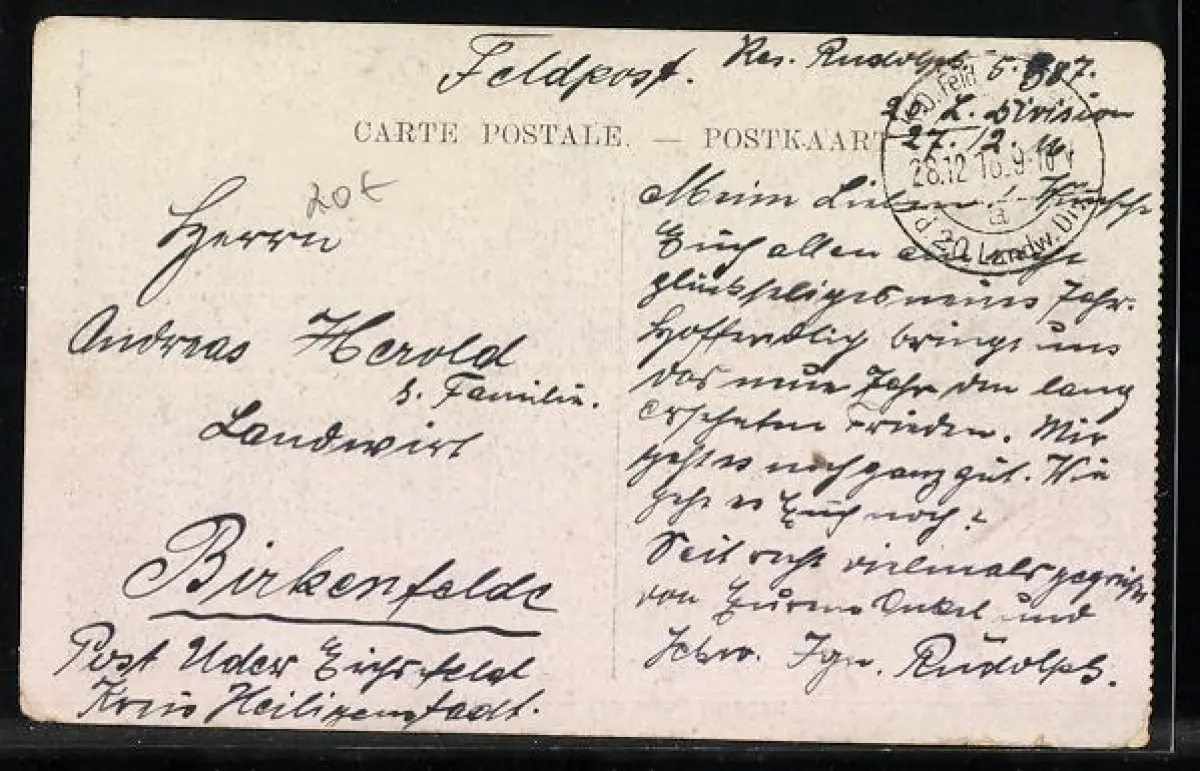 Feldpost. Res. Rudolph. 5. 387.
20. L. Division
27. 12. 16
CARTE POSTALE. — POSTKAART
28.12 16. 9-10 V
a
d 20. Landw. Div.
20 €
Herrn
Andreas Herold
u. Familie.
Landwirt
Birkenfelde
Post Uder Eichsfeld
Kreis Heiligenstadt.
Meine Lieben! Wünsche
Euch allen
glückseliges neues Jahr.
Hoffendlich bringe uns
das neue Jahr den lang
ersehnten Frieden. Mir
geht es noch ganz gut. Wie
geht es Euch noch?
Seit recht vielmals gegrüßt
von Eurem Onkel und
Schw. Ign. Rudolph.